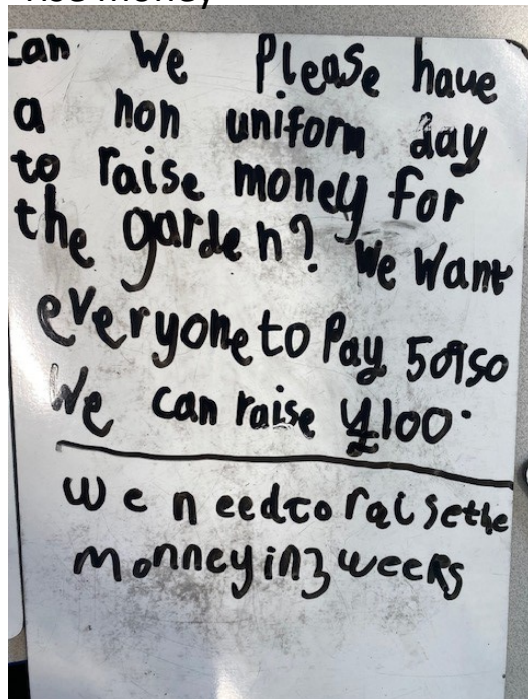 rise money
Can We Please have
a non uniform day
to raise money for
the garden? We Want
everyone to Pay 50p so
We can raise £100.
We need to raise the
monney in 3 weeks